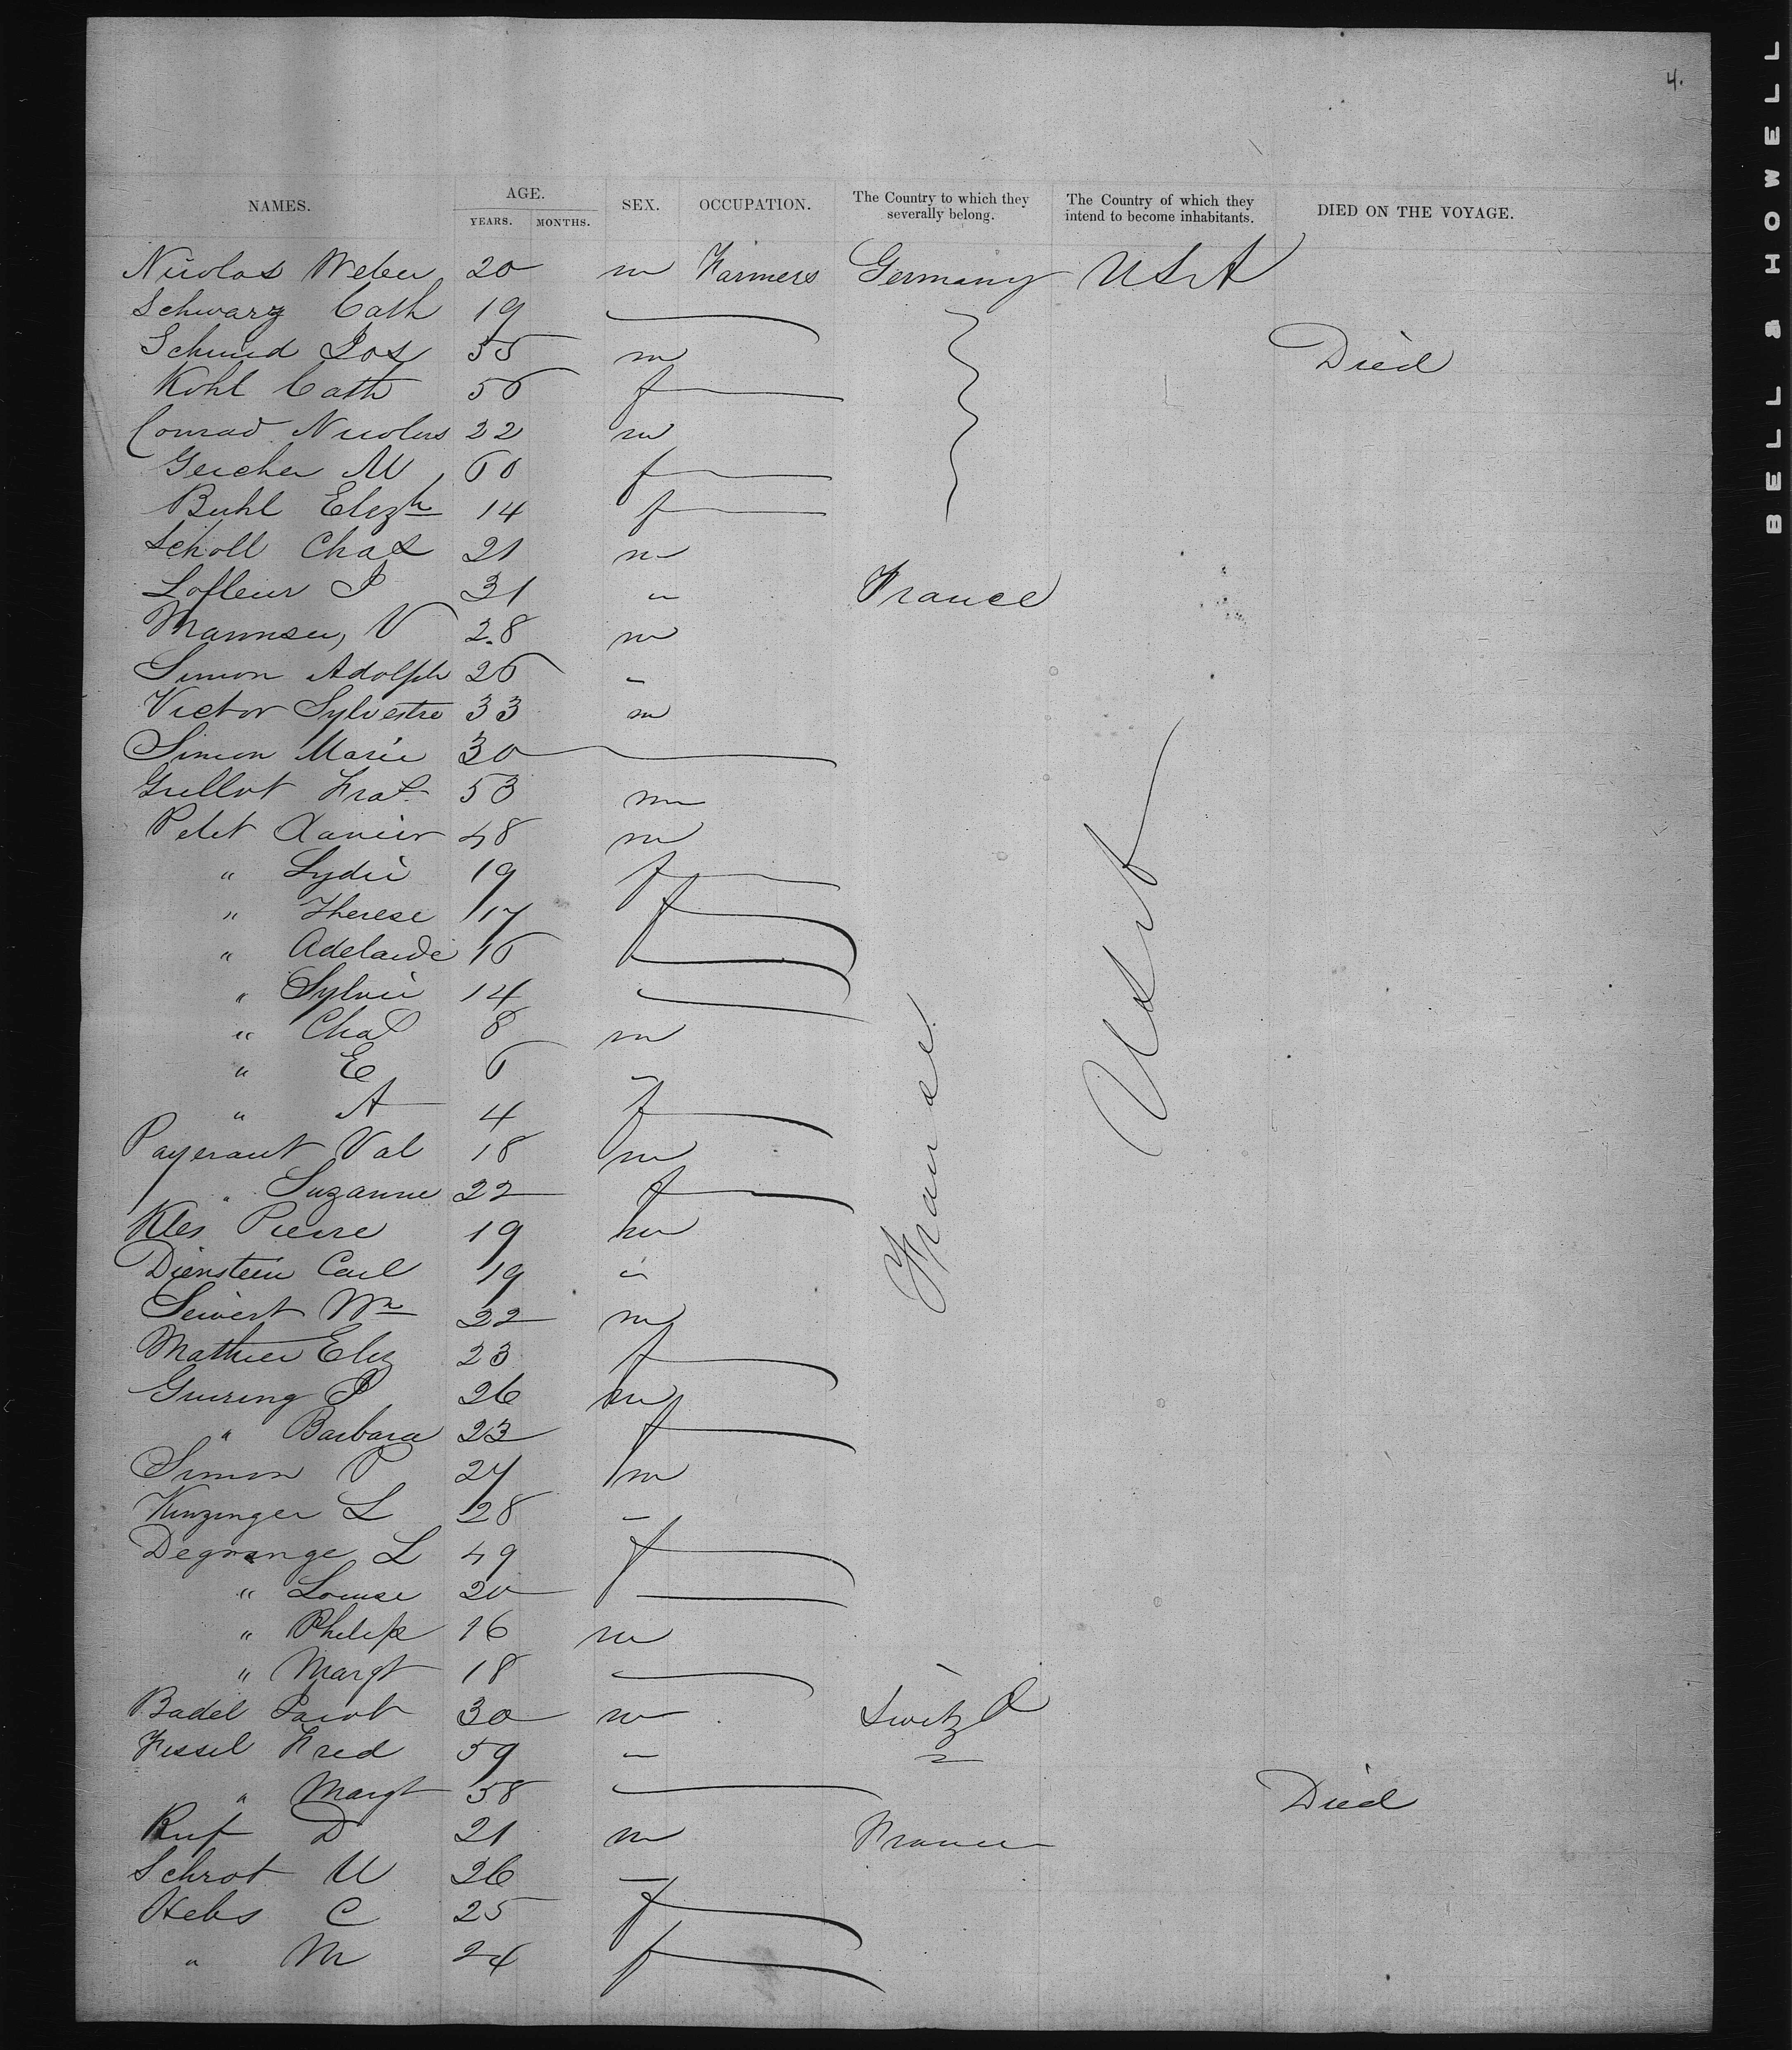 4.
NAMES. AGE. SEX. OCCUPATION. The Country to which they severally belong. The Country of which they intend to become inhabitants. DIED ON THE VOYAGE.
YEARS. MONTHS.
Nicolas Weber 20 m Farmers Germany USA
Schwarz Cath 19
Schmid Jos 55 m Died
Kohl Cath 56 f
Conrad Nicolas 22 m
Geicher M 60 f
Buhl Elizh 14 f
Scholl Chas 21 m
Lofleur P 31 " France
V 28 m
Simon Adolph 26 "
Victor Sylvestre 33 m
Simon Marie 30
Grillot Fras 53 m
Petit Xavier 48 m
" Lydie 19 f
" Therese 17 f
" Adelaide 16
" Sylvie 14
" Chas 8 m
" E 6 "
" A 4 f
Payeraut Val 18 m
" Suzanne 22 f
Kles Pierre 19 m
Dienstein Carl 19 "
Seivert Wm 22 m
Mathieu Eliz 23 f
P 26 m
" Barbara 23 f
Simon P 27 m
Kinzinger L 28 "
Degrange L 49 f
" Louise 20
" Philip 16 m
" Margt 18
Badel Jacob 30 m Switzd
Fessel Fred 59 " "
" Margt 58 Died
Ruf D 21 m France
Schrot U 26 "
Hebs C 25 f
" M 24 f
France
USA
BELL & HOWELL